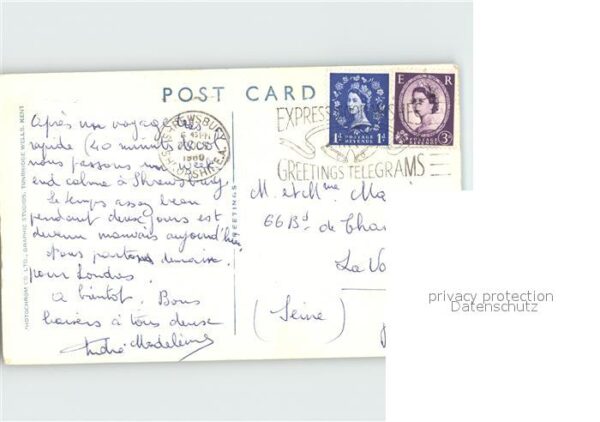 POST CARD
Après un voyage très
rapide (40 minutes
nous passons un week
end calme à Shrewsbury
Le temps assez beau
pendant deux jours est
devenu mauvais aujourd'hui
Nous partons demain
pour Londres.
A bientôt. Bons
baisers à tous deux
André Madeleine
PHOTOCHROM CO. LTD., GRAPHIC STUDIOS, TUNBRIDGE WELLS, KENT
GREETINGS
SHREWSBURY
1960
SHROPSHIRE
EXPRESS
GREETINGS TELEGRAMS
1D POSTAGE REVENUE 1D
E R
3D
M. et Mme Ma
66 Bd de Char
La Va
(Seine)
privacy protection
Datenschutz